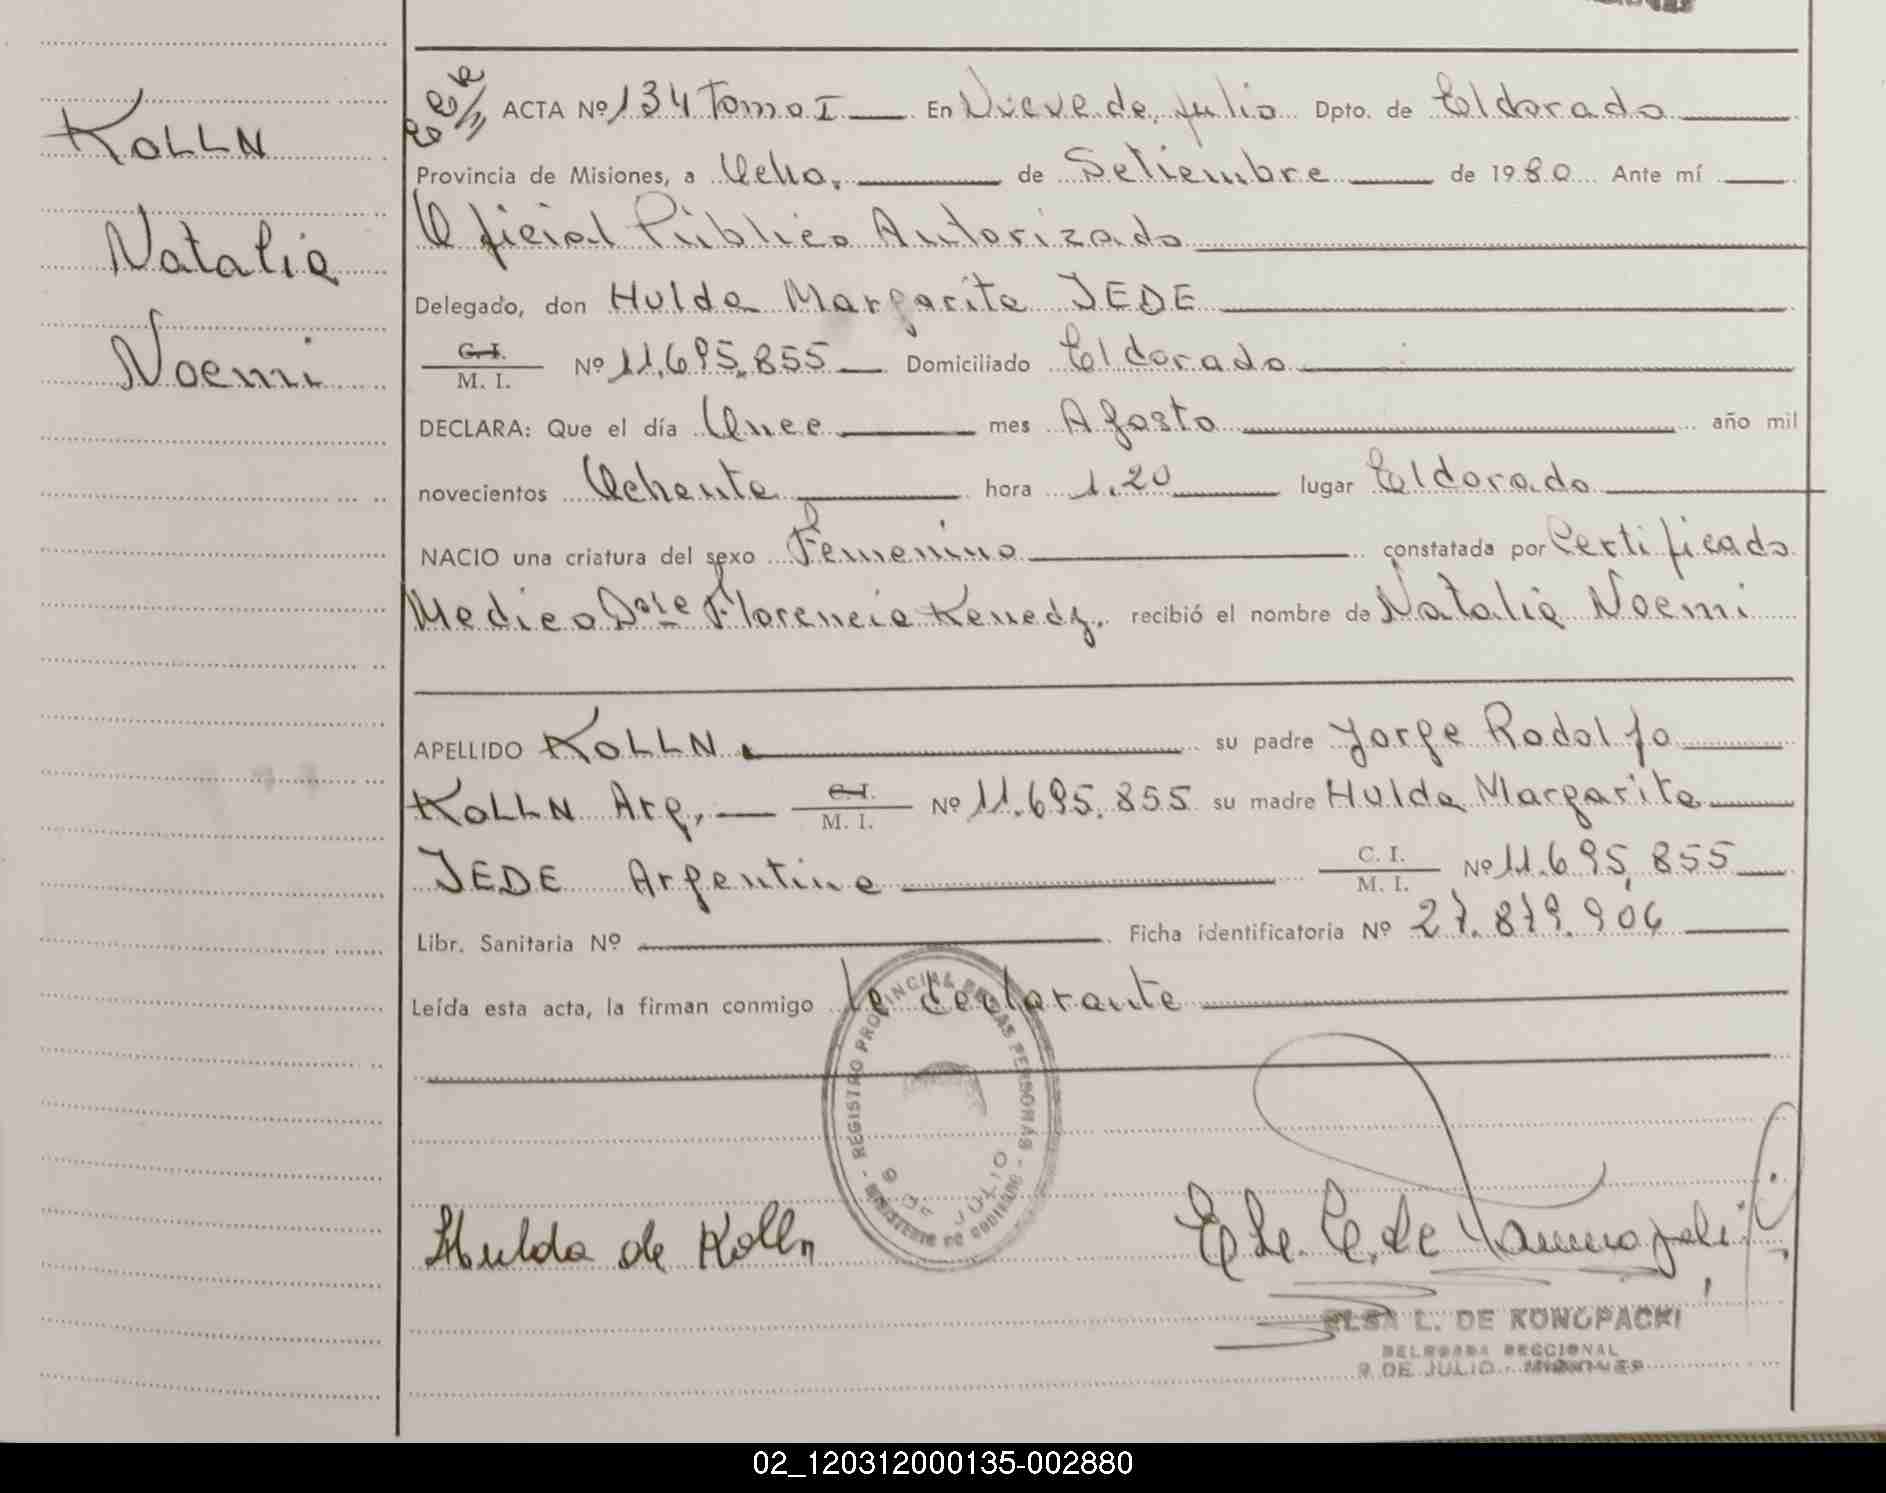 KOLLN
Natalia
Noemi
ACTA Nº 134 Tomo I En Nueve de Julio Dpto. de Eldorado
Provincia de Misiones, a Ocho. de Setiembre de 1980 Ante mí
Oficial Público Autorizado
Delegado, don Hulda Margarita JEDE
C. I.
M. I. Nº 11.695.855 Domiciliado Eldorado
DECLARA: Que el día Once mes Agosto año mil
novecientos Ochenta hora 1.20 lugar Eldorado
NACIO una criatura del sexo Femenino constatada por Certificado
Medico Florencia Kenedy. recibió el nombre de Natalia Noemi
APELLIDO KOLLN su padre Jorge Rodolfo
KOLLN Arg. C. I.
M. I. Nº 11.695.855 su madre Hulda Margarita
JEDE Argentina C. I.
M. I. Nº 11.695.855
Libr. Sanitaria Nº Ficha identificatoria Nº 27.879.906
Leída esta acta, la firman conmigo la declarante
REGISTRO PROVINCIAL DE LAS PERSONAS
9 DE JULIO
MINISTERIO DE GOBIERNO
Hulda de Kolln
ELSA L. DE KONOPACKI
DELEGADA REGIONAL
9 DE JULIO - MISIONES
02_120312000135-002880